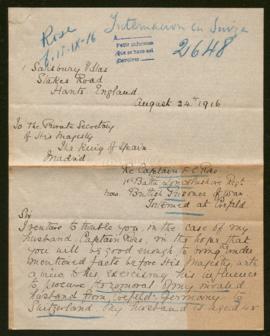 Internacion en Suiza
Rose
8-17-IX-16
A
2648
Salisbury Villas
Stakes Road
Hants. England
August 24th 1916
To the Private Secretary
of His Majesty
The King of Spain
Madrid.
Re Captain F. C. Rose
1st Battn Lincolnshire Regt
now British Prisoner of War
Interned at Crefeld.
Sir
I venture to trouble you, in the case of my
husband, Captain Rose, in the hope that
you will be good enough to bring under
mentioned facts before His Majesty, with
a view to his exercising his influence
to procure removal of my invalid
husband from Crefeld, Germany to
Switzerland. My husband is aged 45